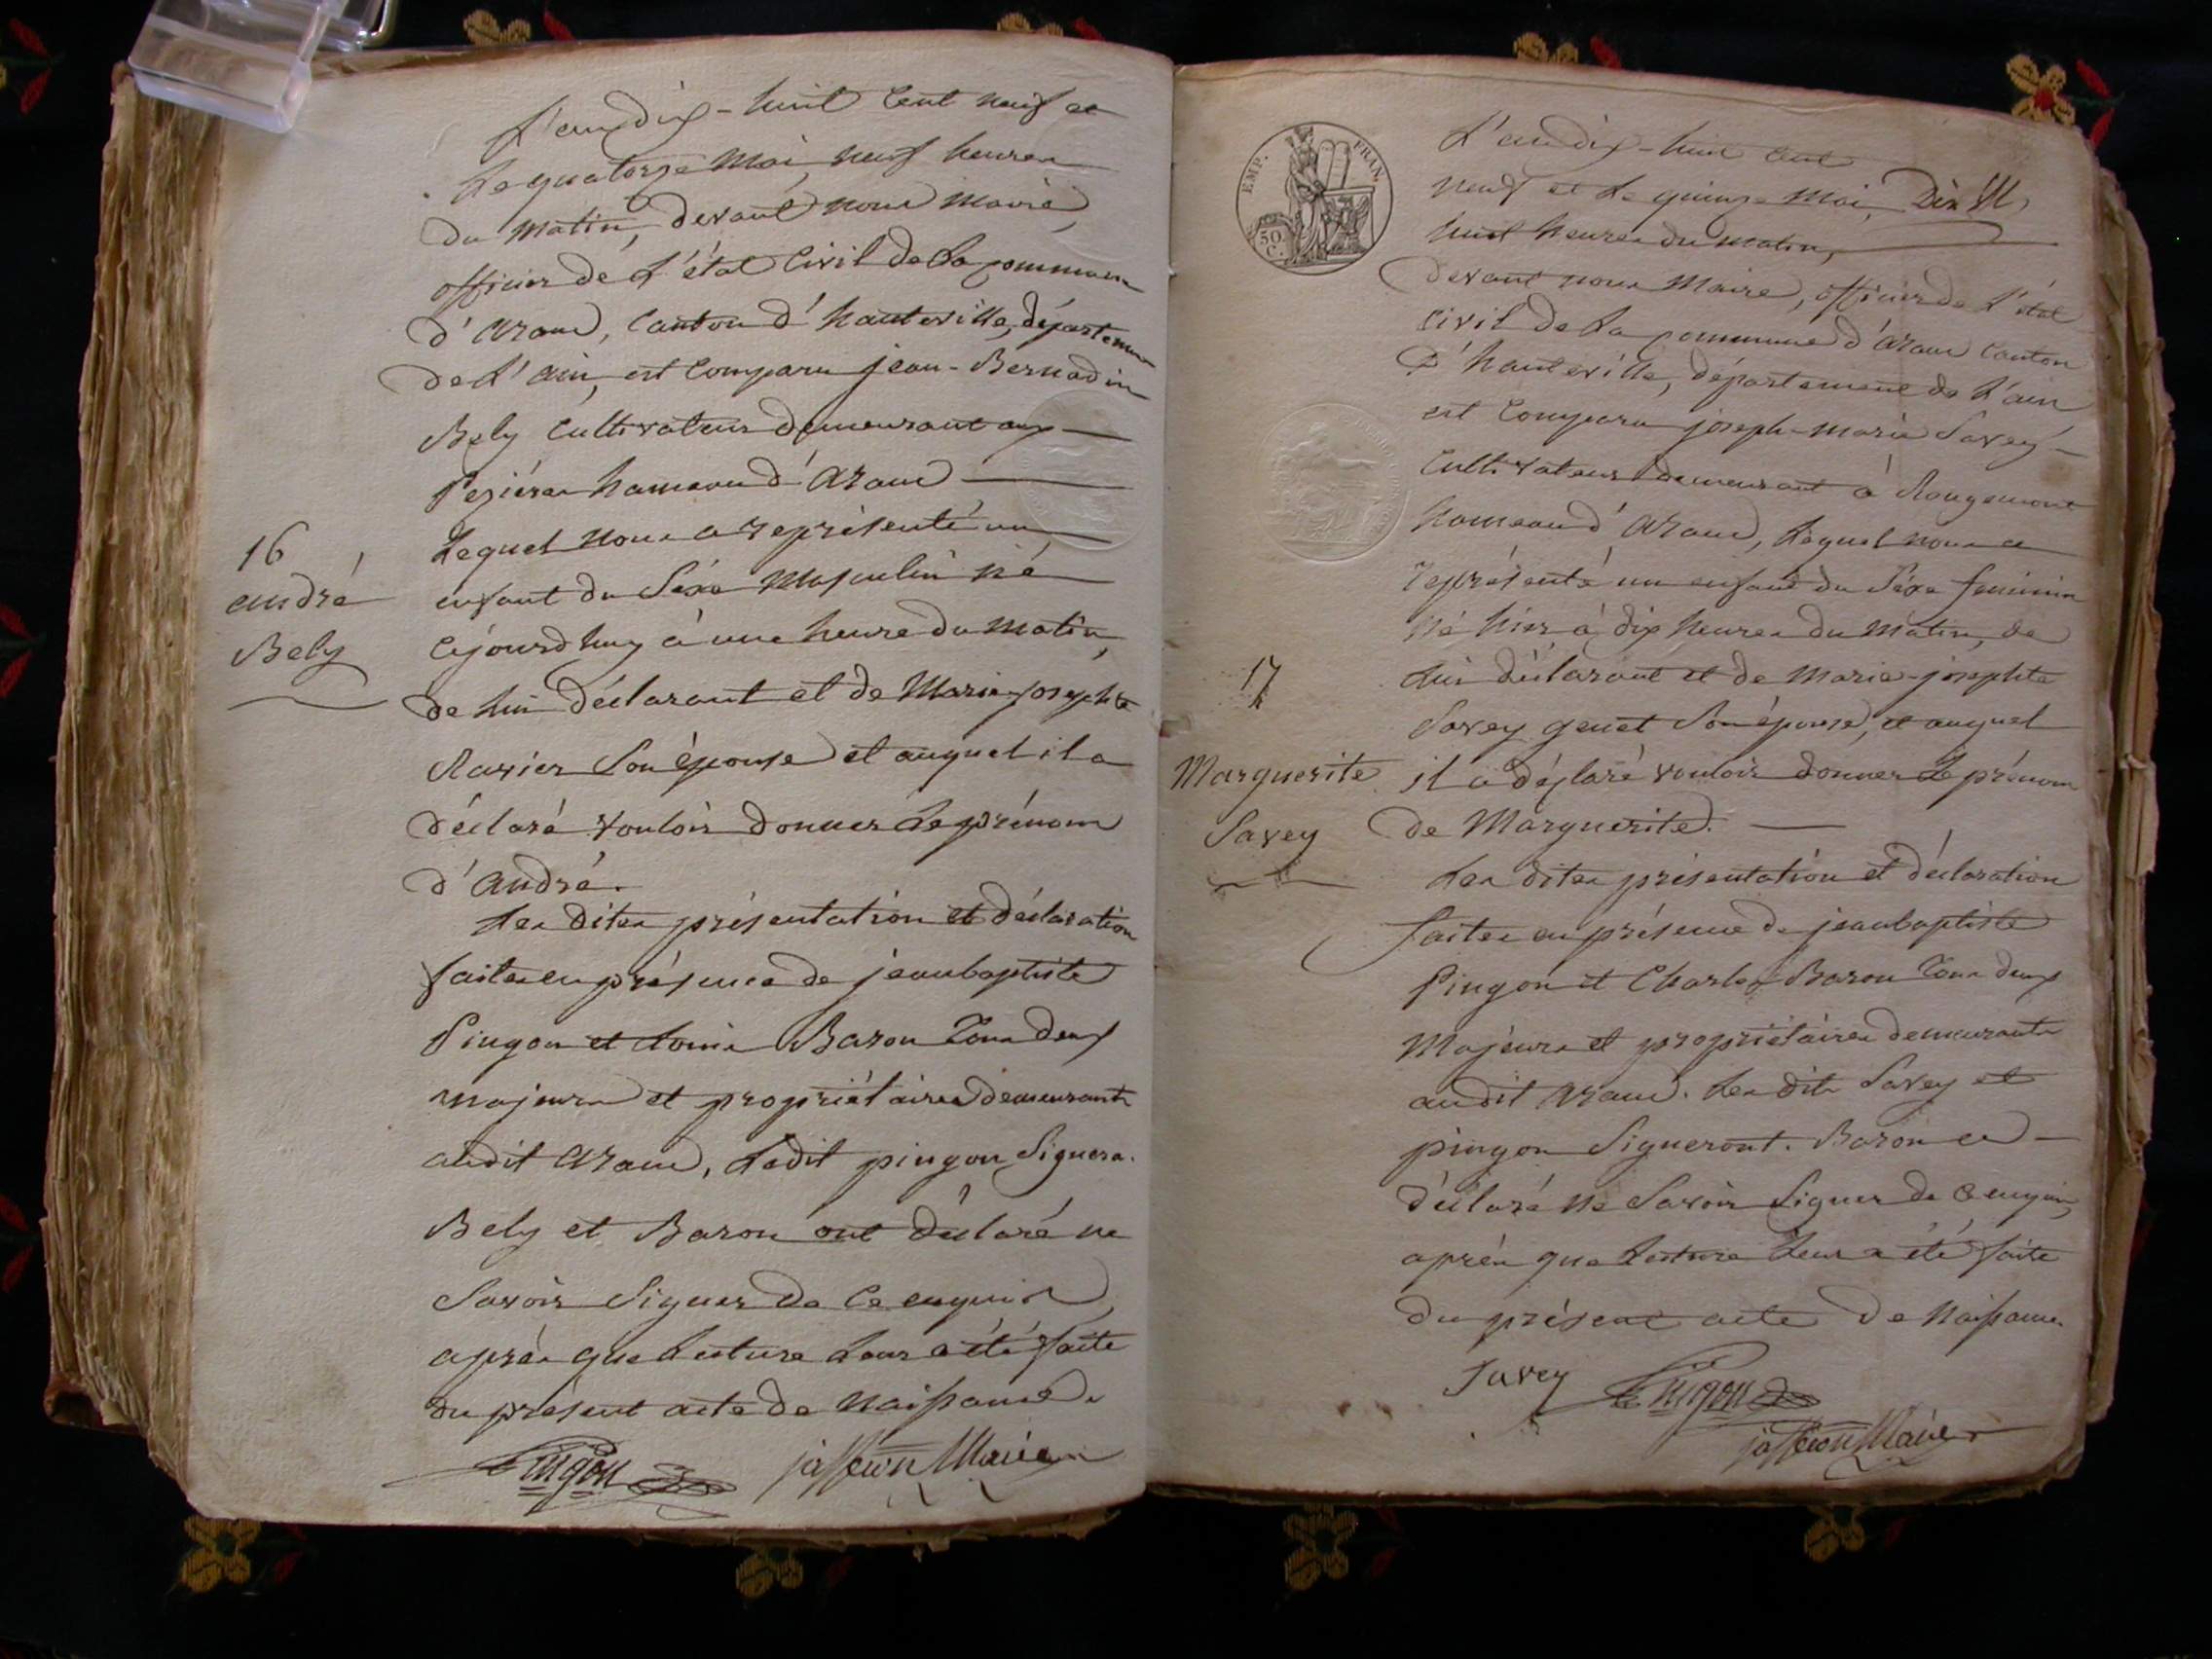 L'an dix-huit cent neuf et
le quatorze mai, neuf heures
du matin, devant nous maire,
officier de L'état Civil de la commune
d'aranc, Canton d'hauteville, département
de L'ain, est Comparu jean-Bernadin
Bely Cultivateur demeurant aux
Peziéres hameau d'aranc
16
Lequel nous a représenté un
andré
enfant du Séxe Masculin né
Bely
Cejourdhuy à une heure du matin,
de Lui déclarant et de Marie-josephte
Ravier Son épouse et auquel il a
déclaré vouloir donner Le prénom
d'andré.
Les dites présentation et déclaration
faites en présence de jeanbaptiste
Pingon et Louis Baron Tous deux
majeurs et propriétaires demeurants
audit aranc, Ledit pingon Signera.
Bely et Baron ont déclaré ne
Savoir Signer de Ce enquis,
après que Lecture Leur a été faite
du présent acte de Naissance.
Pingon jasseron Maire
EMP. FRAN.
50 C.
L'an dix-huit cent
neuf et Le quinze mai, Dix
huit heures du matin,
devant nous Maire, officier de L'état
Civil de La commune d'aranc Canton
d'hauteville, département de L'ain
est Comparu joseph-marie Savey
Cultivateur demeurant à Rougemont
hameau d'aranc, Lequel nous a
représenté un enfant du Séxe feminin
Né hier à dix heures du Matin, de
17
Lui déclarant et de Marie-josephte
Savey genet Son épouse, et auquel
Marguerite
il a déclaré vouloir donner Le prénom
Savey
de Marguerite.
Les dites présentation et déclaration
faites en présence de jeanbaptiste
Pingon et Charles Baron Tous deux
Majeurs et propriétaires demeurants
audit aranc. Les dits Savey et
pingon Signeront. Baron a
déclaré Ne Savoir Signer de Ce enquis,
après que Lecture Leur a été faite
du présent acte de Naissance.
Savey Pingon
jasseron Maire